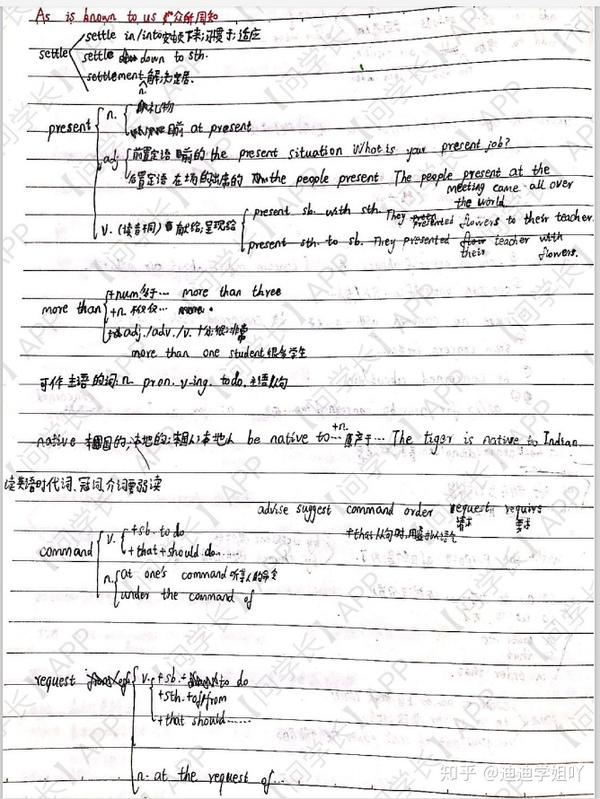 As is known to us 众所周知
settle in/into 安顿下来;习惯于;适应
settle settle down to sth.
settlement n. 解决;定居
present n. 礼物
目前 at present
adj 前置定语 目前的 the present situation What is your present job?
后置定语 在场的;出席的 the people present The people present at the meeting came all over the world
v. (读音不同) 献给;呈现给 present sb. with sth. They presented flowers to their teacher.
present sth. to sb. They presented their teacher with flowers.
more than +num 多于… more than three
+n. 不仅仅…
+adj./adv./v. 十分;很;非常
more than one student 很多学生
可作主语的词: n. pron. v-ing. to do. 主语从句
native 本国的;本地的;本国人;本地人 be native to…+n. 原产于… The tiger is native to Indian.
读英语时代词、冠词、介词要弱读
advise suggest command order request 请求 require 要求
+that从句时,用虚拟语气
command v. +sb. to do
+that+should do……
n. at one's command 听某人的命令
under the command of
request v. +sb. + to do
+sth. from
+that should……
n. at the request of…
知乎 @迪迪学姐吖
【问学长】APP